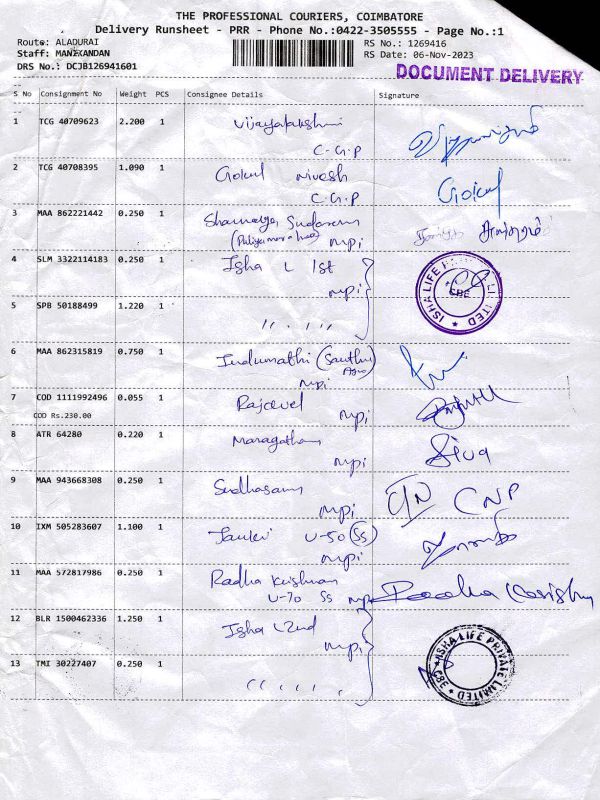 THE PROFESSIONAL COURIERS, COIMBATORE
Delivery Runsheet - PRR - Phone No.:0422-3505555 - Page No.:1
Route: ALADURAI
RS No.: 1269416
Staff: MANIKANDAN
RS Date: 06-Nov-2023
DRS No.: DCJB126941601
DOCUMENT DELIVERY
S No Consignment No Weight PCS Consignee Details Signature
1 TCG 40709623 2.200 1 Vijayalakshmi
C.G.P
2 TCG 40708395 1.090 1 Gokul Nivesh Gokul
C.G.P
3 MAA 862221442 0.250 1
mpi
4 SLM 3322114183 0.250 1 Isha L 1st
mpi
ISHA LIFE LIMITED
CBE
5 SPB 50188499 1.220 1
6 MAA 862315819 0.750 1 Indumathi (Santhi
mpi
7 COD 1111992496 0.055 1 Rajavel
COD Rs.230.00 mpi
8 ATR 64280 0.220 1 Maragatham Siva
mpi
9 MAA 943668308 0.250 1 CNP
mpi
10 IXM 505283607 1.100 1 U-50 (SS)
mpi
11 MAA 572817986 0.250 1 Radha Krishnan
U-70 SS mpi Radha Krishn
12 BLR 1500462336 1.250 1 Isha L2nd
mpi
ISHA LIFE PRIVATE LIMITED
CBE
13 TMI 30227407 0.250 1